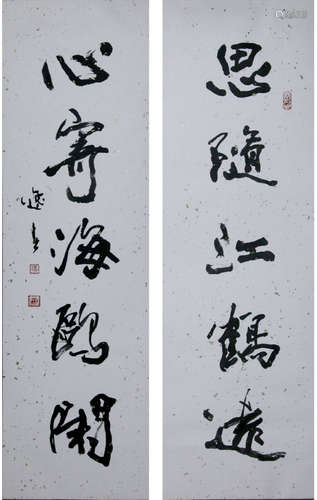 思隨江鶴遠
心寄海鷗閑